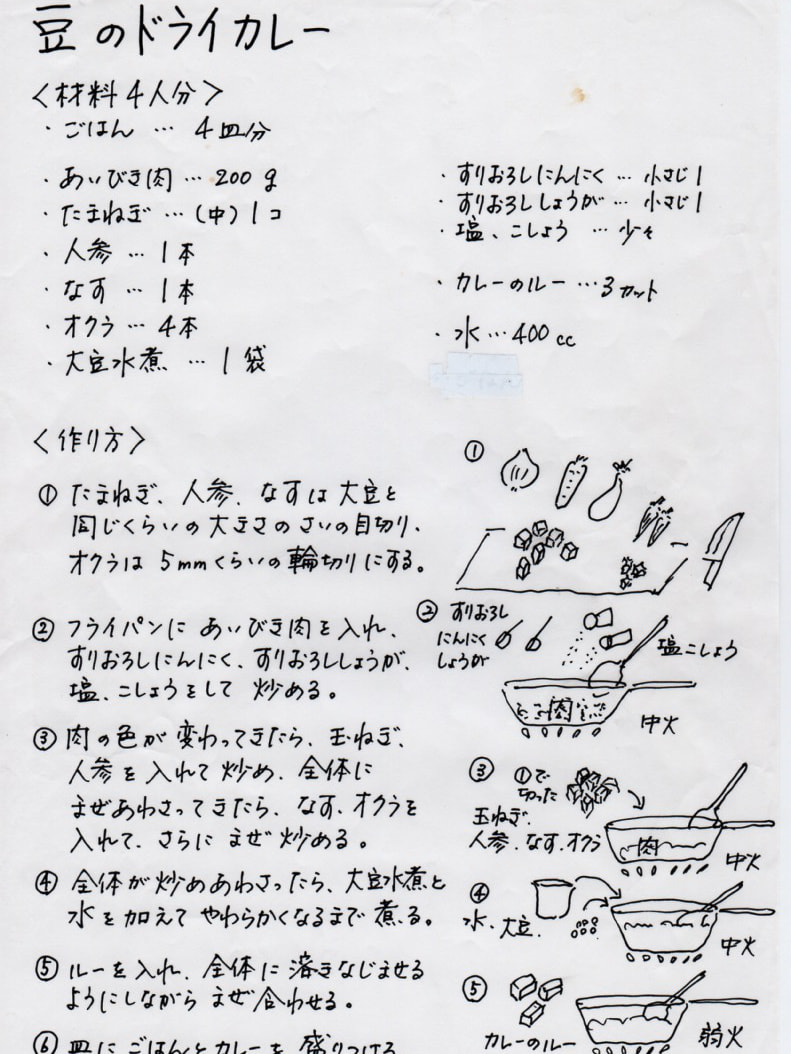 豆のドライカレー
〈材料4人分〉
・ごはん … 4皿分
・あいびき肉 … 200g
・たまねぎ …(中)1コ
・人参 … 1本
・なす … 1本
・オクラ … 4本
・大豆水煮 … 1袋
・すりおろしにんにく … 小さじ1
・すりおろししょうが … 小さじ1
・塩、こしょう … 少々
・カレーのルー … 3カット
・水 … 400cc
〈作り方〉
① たまねぎ、人参、なすは大豆と
同じくらいの大きさのさいの目切り、
オクラは5mmくらいの輪切りにする。
② フライパンにあいびき肉を入れ、
すりおろしにんにく、すりおろししょうが、
塩、こしょうをして炒める。
③ 肉の色が変わってきたら、玉ねぎ、
人参を入れて炒め、全体に
まぜあわさってきたら、なす、オクラを
入れて、さらにまぜ炒める。
④ 全体が炒めあわさったら、大豆水煮と
水を加えてやわらかくなるまで煮る。
⑤ ルーを入れ、全体に溶きなじませる
ようにしながらまぜ合わせる。
⑥ 皿にごはんとカレーを盛りつける
①
② すりおろし
にんにく
しょうが
塩こしょう
肉
中火
③ ①で
切った
玉ねぎ、
人参、なす、オクラ
肉
中火
④
水、大豆、
中火
⑤
カレーのルー
弱火